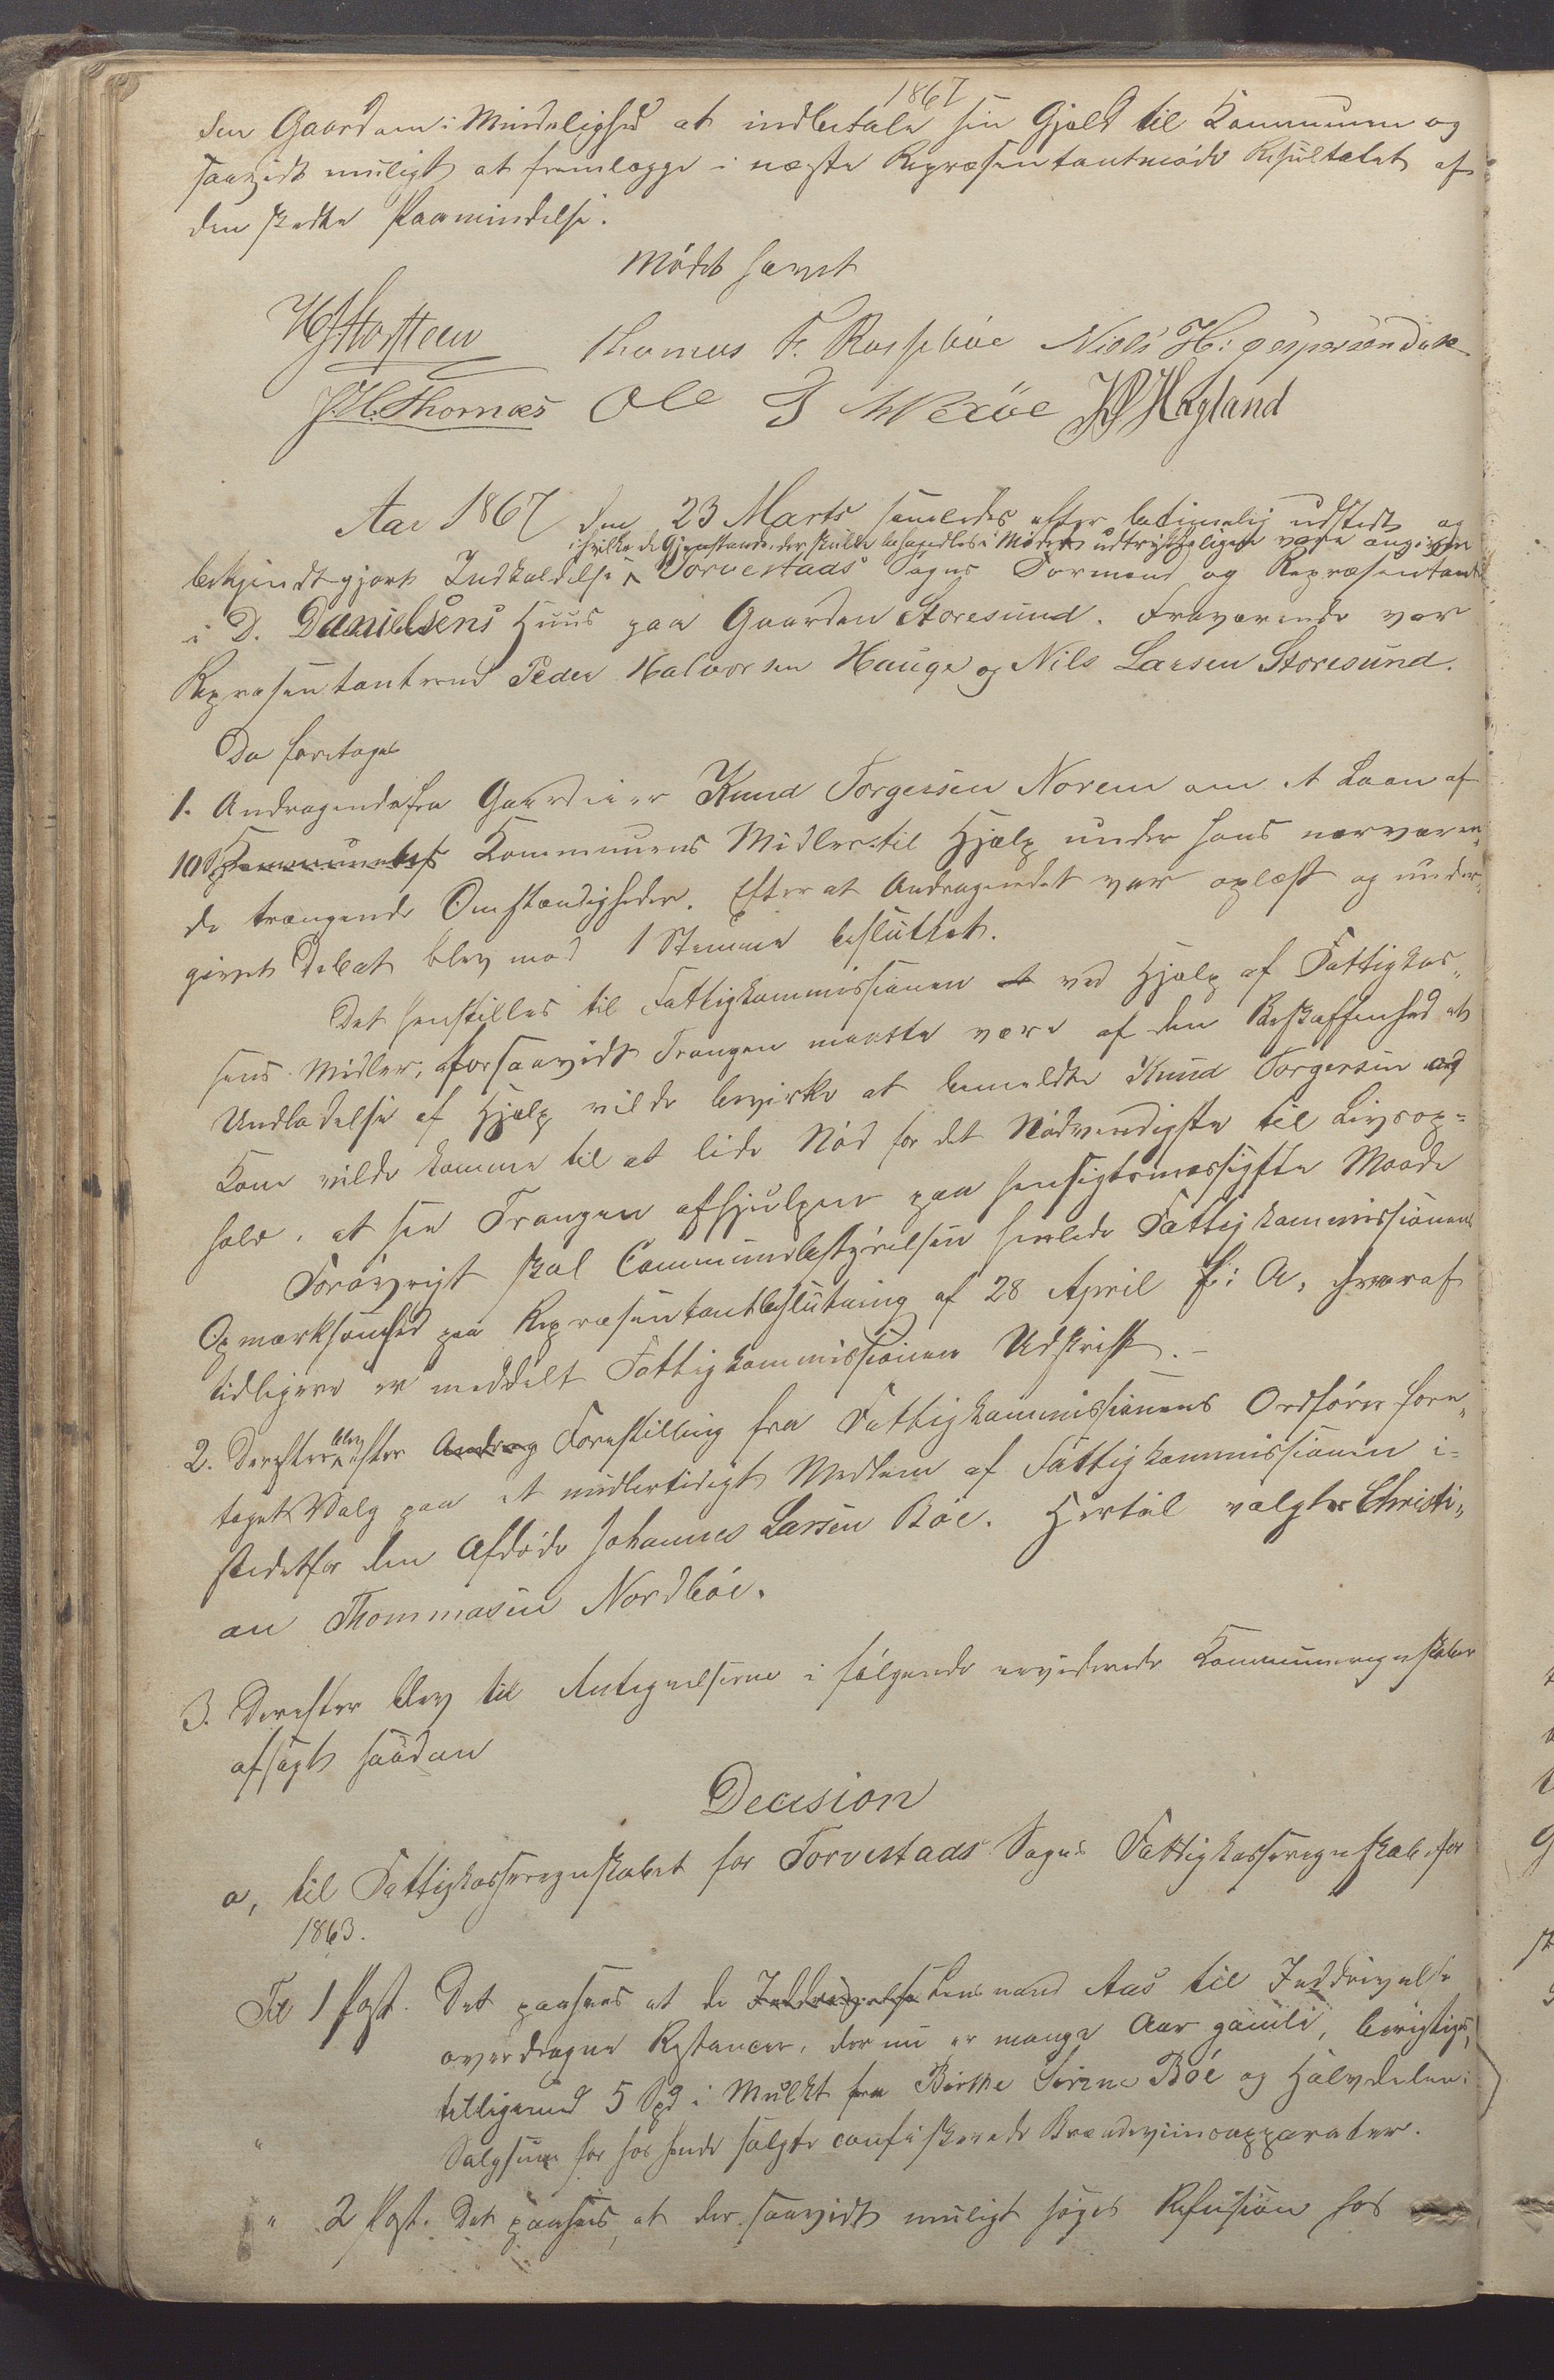 1867
den Gaardam i Mindelighed at indbetale sin Gjeld til Kommunen og
saavidt muligt at fremlægge i næste Repræsentantmøde Resultatet af
den skedte Paamindelse.
Mødet hævet
Thomas T. Rossebøe Niels H: Jespersen
J. H. Thomas Ole J Hagland
Aar 1867 den 23 Marts samledes efter betimelig udstedt og
i hvilke de Gjenstande, der skulde behandles i Mødet udtrykkeligen vare angivne
bekjendtgjort Indkaldelse Torvestads Sogns Formænd og Repræsentanter
i D. Danielsens Huus paa Gaarden Storesund. Fraværende var
Repræsentanterne Peder Halvorsen Hauge og Nils Larsen Storesund.
Da foretoges
1. Andragende fra Gaardbruger Knud Torgersen Norem om et Laan af
10 Spd Kommunens Midler til Hjælp under hans nærværen„
de trængende Omstændigheder. Efter at Andragendet var oplæst og under„
givet Debat blev mod 1 Stemme besluttet.
Det henstilles til Fattigkommissionen at ved Hjælp af Fattigkas„
sens Midler, forsaavidt Trangen maatte være af den Beskaffenhed at
Undladelse af Hjælp vilde bevirke at bemeldte Knud Torgersen og
Kone vilde komme til at lide Nød for det Nødvendigste til Livsop=
hold, at see Trangen afhjulpen paa hensigtsmæssigste Maade
Forøvrigt skal Communebestyrelsen henlede Fattigkommissionens
Opmærksomhed paa Repræsentantbeslutning af 28 April f: A, hvoraf
tidligere er meddelt Fattigkommissionen Udskrift.-
2. Derefter blev efter Andrag Forestilling fra Fattigkommissionens Ordfører fore„
taget Valg paa et midlertidigt Medlem af Fattigkommissionen i=
stedetfor den Afdøde Johannes Larsen Bøe. Hertil valgtes Christi„
an Thommasen Nordbøe.
3. Derefter blev til Antegnelserne i følgende reviderede Kommuneregnskaber
afsagt saadan
Decision
a, til Fattigkasseregnskabet for Torvestads Sogns Fattigkasseregnskab for
1863.
Til 1 Post. Det paasees at de Inddrivelse Lensmand Aas til Inddrivelse
overdragne Restancer, der nu er mange Aar gamle, berigtiges,
tilligemed 5 Spd i Mulkt fra Birthe Serine Bøe og Halvdelen i
Salgsum for hos hende solgte confiskerede Brændeviinsapparater.
" 2 Post. Det paasees, at der saavidt muligt søges Refusion hos